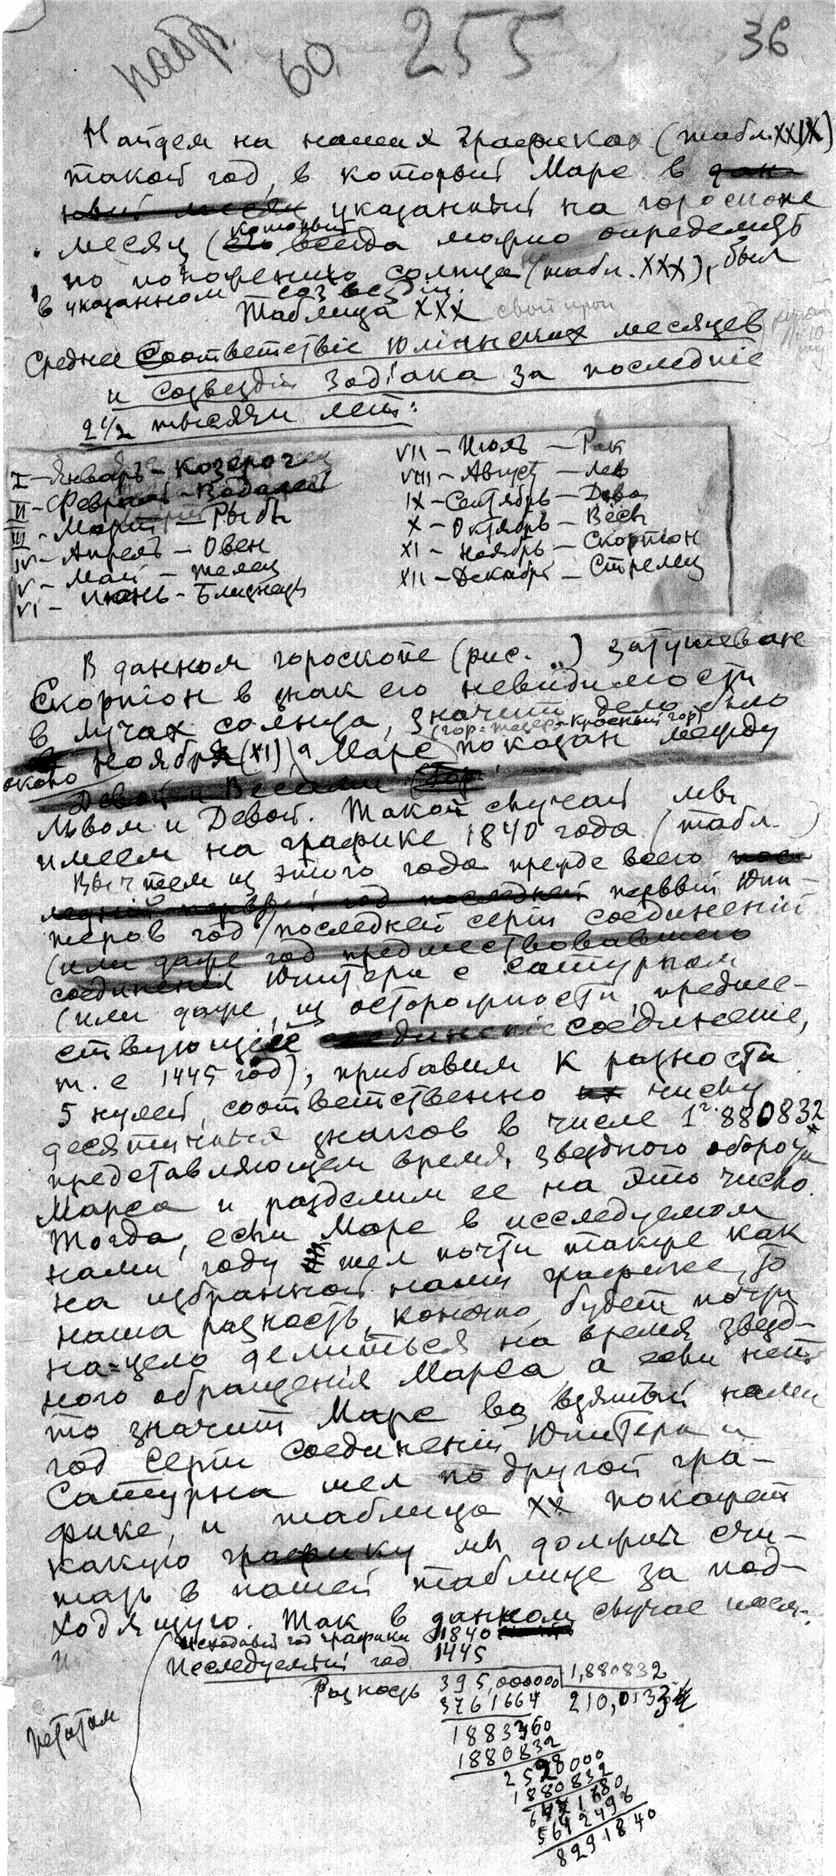 набр. 60 255 36
Найдем на наших графиках (табл. XXIX)
такой год, в который Марс в дан-
ный месяц указанный на гороскопе
месяц (который всегда можно определить
по положению солнца (табл. XXX), был
в указанном созвездіи.
Таблица XXX
Среднее Соответствіе Юліанских месяцев
и созвездій Зодіака за последніе
2 1/2 тысячи лет:
I - Январь - Козерог
II - Февраль - Водолей
III - Март - Рыбы
IV - Апрель - Овен
V - Май - Телец
VI - Июнь - Близнецы
VII - Июль - Рак
VIII - Август - Лев
IX - Сентябрь - Дева
X - Октябрь - Весы
XI - Ноябрь - Скорпіон
XII - Декабрь - Стрелец
В данном гороскопе (рис. ..) затушеван
Скорпіон в знак его невидимости
в лучах солнца, значит дело было
около ноября (XI), а Марс показан между
Девой и Весами
Львом и Девой. Такой случай мы
имеем на графике 1840 года (табл. )
Вычтем из этого года прежде всего
первый Юпи-
теров год последней серіи соединеній
(или даже год предшествовавшего
соединенія Юпитера с Сатурном
(или даже, из осторожности, предше-
ствующее соединеніе,
т. е 1445 год), прибавим к разности
5 нулей, соответственно числу
десятичных знаков в числе 1г. 880832
представляющем время звездного оборота
Марса и разделим ее на это число.
Тогда, если Марс в исследуемом
нами году шел почти так же как
на избранной нами графике, то
наша разность, конечно, будет почти
на-цело делиться на время звезд-
ного обращенія Марса, а если нет
то значит Марс во взятый нами
год серіи соединеній Юпитера и
Сатурна шел по другой гра-
фике, и таблица XX покажет
какую графику мы должны счи-
тать в нашей таблице за под-
ходящую. Так в данном случае имеем:
Исходный год графики 1840
Исследуемый год 1445
Разность 395,000000 | 1,880832
3761664 210,0133
1883360
1880832
2528000
1880832
5642496
8291840
петитом